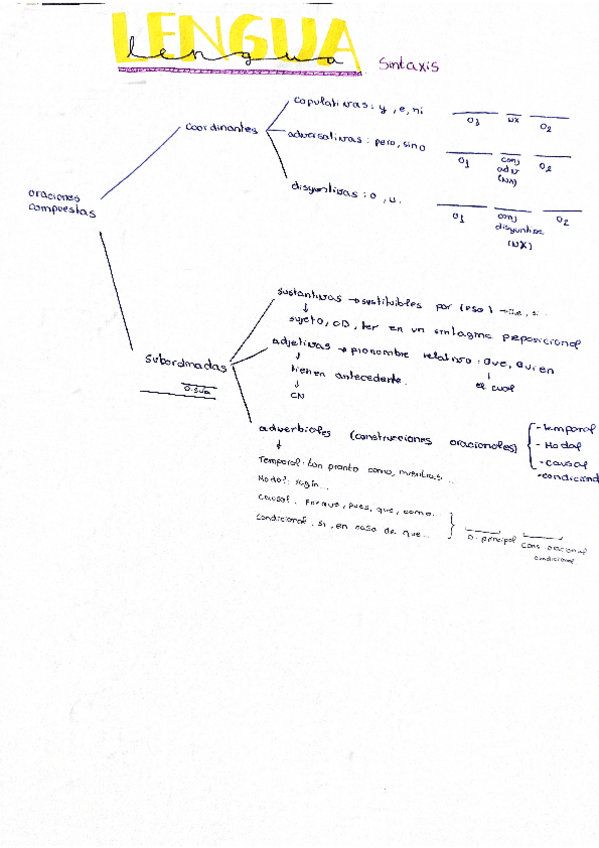 LENGUA
lengua
Sintaxis
oraciones
compuestas
coordinantes
copulativas: y, e, ni
O1 NX O2
adversativas: pero, sino
O1 conj adv (NX) O2
disyuntivas: o, u.
O1 conj disyuntiva (NX) O2
subordinadas
O.Sub
sustantivas → sustituibles por (eso) →
sujeto, CD, ter en un sintagma preposicional
adjetivas → pronombre relativo: que, quien
el cual
tienen antecedente.
CN
adverbiales (construcciones oracionales)
- temporal
- Modal
- causal
- condicional
Temporal: tan pronto como, mientras...
Modal: según...
Causal: porque, pues, que, como...
Condicional: si, en caso de que...
O. principal
cons. oracional
condicional